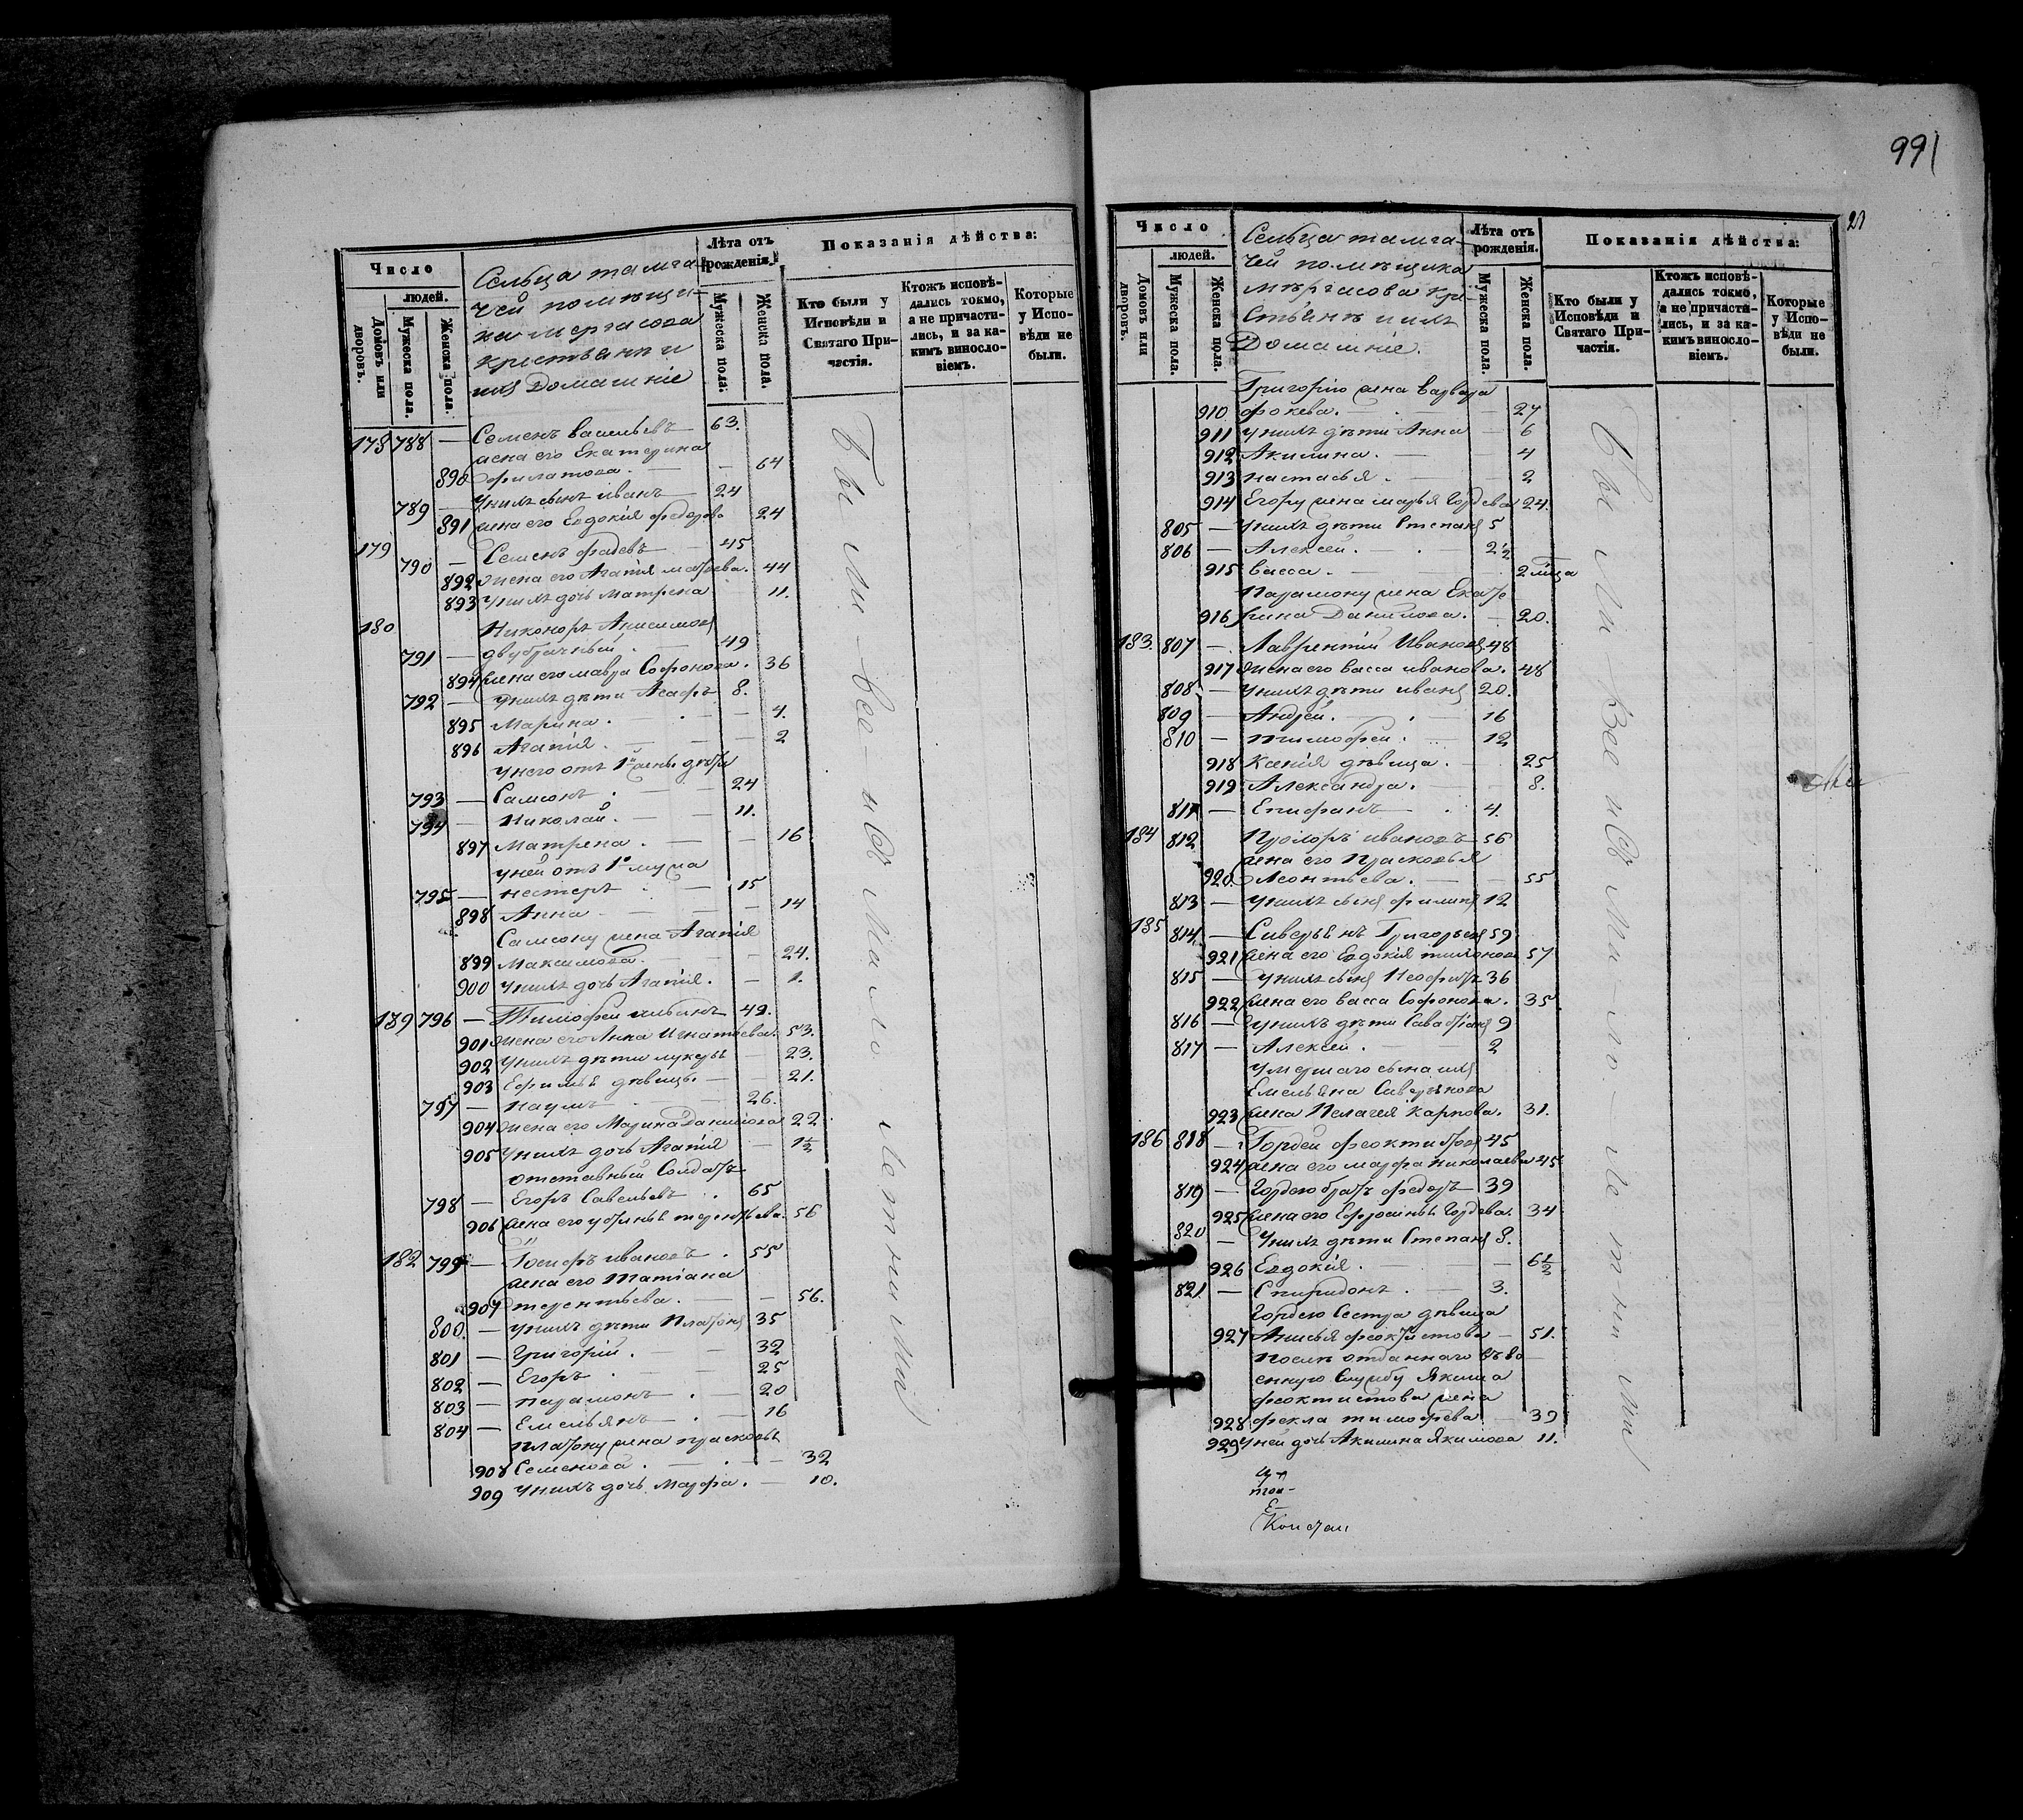 Число
людей.
Домовъ или дворовъ.
Мужеска пола.
Женска пола.
Сельца тамга-
чей помѣщи-
ка мергасова
кристьянѣ и
ихъ Домашніе
Лѣта отъ рожденія.
Мужеска пола.
Женска пола.
Показанія дѣйства:
Кто были у Исповѣди и Святаго При-частія.
Ктожъ исповѣ-дались токмо, а не причасти-лись, и за ка-кимъ винносло-віемъ.
Которые у Испо-вѣди не были.
178 788 — Семенъ васильевъ — 63.
жена его Екатерина
890 филатова. — — 64
789 — Унихъ сынъ иванъ — 24
891 жена его Евдокія федорова 24
179 790 — Семенъ фадѣевъ — 45
892 Жена его Агапія матвѣева. 44
893 Унихъ дочь Матрена 11.
180 Никоноръ Анисимовъ
791 — двубрачный. — 49
894 жена его мавра Софонова. 36
792 — Унихъ дѣти Асафъ 8.
895 Марина. — . — — 4.
896 Агапія. — — — 2
Унего отъ 1й жены дѣти
793 — Самсонъ . — — 24
794 — Николай. — — 11.
897 Матрена. — — 16
Уней отъ 1го мужа
795 — нестеръ . — 15
898 Анна — — — 14
Самсону жена Агапія
899 Максимова. — — 24.
900 Унихъ дочь Агапія. — 1.
189 796 — Тимофей ильинъ 49.
901 Жена его Анна Игнатьева. 53.
902 Унихъ дѣти лукерья — 23.
903 Ефимья дѣвицы. — 21.
797 — наумъ — — 26.
904 Жена его Марина Данилова 22
905 Унихъ дочь Агапія — 1½
отставный Солдатъ
798 — Егоръ Савельевъ . 65
906 жена его устинья терентьева. 56
182 799 — Іосифъ ивановъ . 55
жена его Татіана
907 терентьева. — — 56.
800. — Унихъ дѣти Платонъ 35
801 — Григорій. — — 32
802 — Егоръ . — 25
803 — парамонъ . — 20
804 — Емельянъ — . — 16
платону жена прасковья
908 Семенова. — . — — 32
909 Унихъ дочь Марфа. — 10.
Бы ли — все — исв малолетними
991
20
Число
людей.
Домовъ или дворовъ.
Мужеска пола.
Женска пола.
Сельца тамга-
чей помѣщика
мѣргасова кри-
стьянѣ и ихъ
Домашніе.
Лѣта отъ рожденія.
Мужеска пола.
Женска пола.
Показанія дѣйства:
Кто были у Исповѣди и Святаго При-частія.
Ктожъ исповѣ-дались токмо, а не причасти-лись, и за ка-кимъ винносло-віемъ.
Которые у Испо-вѣди не были.
Григорію жена варвара
910 фокева. — . — — 27
911 Унихъ дѣти Анна — 6
912 Акилина. — — 4
913 настасья. — — 2
914 Егору жена марья Гордѣева 24.
805 — Унихъ дѣти Степанъ 5
806 — Алексей. — . — 2½
915 васса. — 2 мѣца
Парамону жена Екате
916 рина Данилова. — 20.
183. 807 — Лаврентій Ивановъ 48
917 Жена его васса иванова. 48
808 — Унихъ дѣти иванъ 20.
809 — Андрей. — . — 16
810 — тимофей. — 12
918 Ксенія дѣвица. — 25
919 Александра. — — 8.
811 — Епифанъ — . 4.
184 812 Прохоръ ивановъ — 56
жена его Прасковья
920. Леонтьева. — — 55
813 — Унихъ сынъ филипъ 12
185 814 — Северьянъ Григорьевъ 59
921 жена его Евдокія тихонова 57
815 — Унихъ сынъ Неофитъ 36
922 жена его васса Софонова. 35
816 — Унихъ дѣти Саватіанъ 9
817 — Алексей. — 2
Умершаго сына ихъ
Емельяна Северьянова
923 жена Пелагея Карпова. 31.
186 818 — Гордей феоктистовъ 45
924 жена его марфа николаева 45
819 — Гордею братъ федоръ 39
925 жена его Ефросинья Гордѣева. 34
820 — Унихъ дѣти Степанъ 8.
926 Евдокія. — — 6½
821 — Спиридонъ . — 3.
Гордею Сестра дѣвица
927 Анисья феоктистова — 51.
послѣ отданнаго въ во
енную Службу Якима
феоктистова жена
928 фекла тимофѣева — 39
929 Уней дочь Акилина Якимова 11.
Бы ли Все исв ма-ло-летними
Е—
Констан